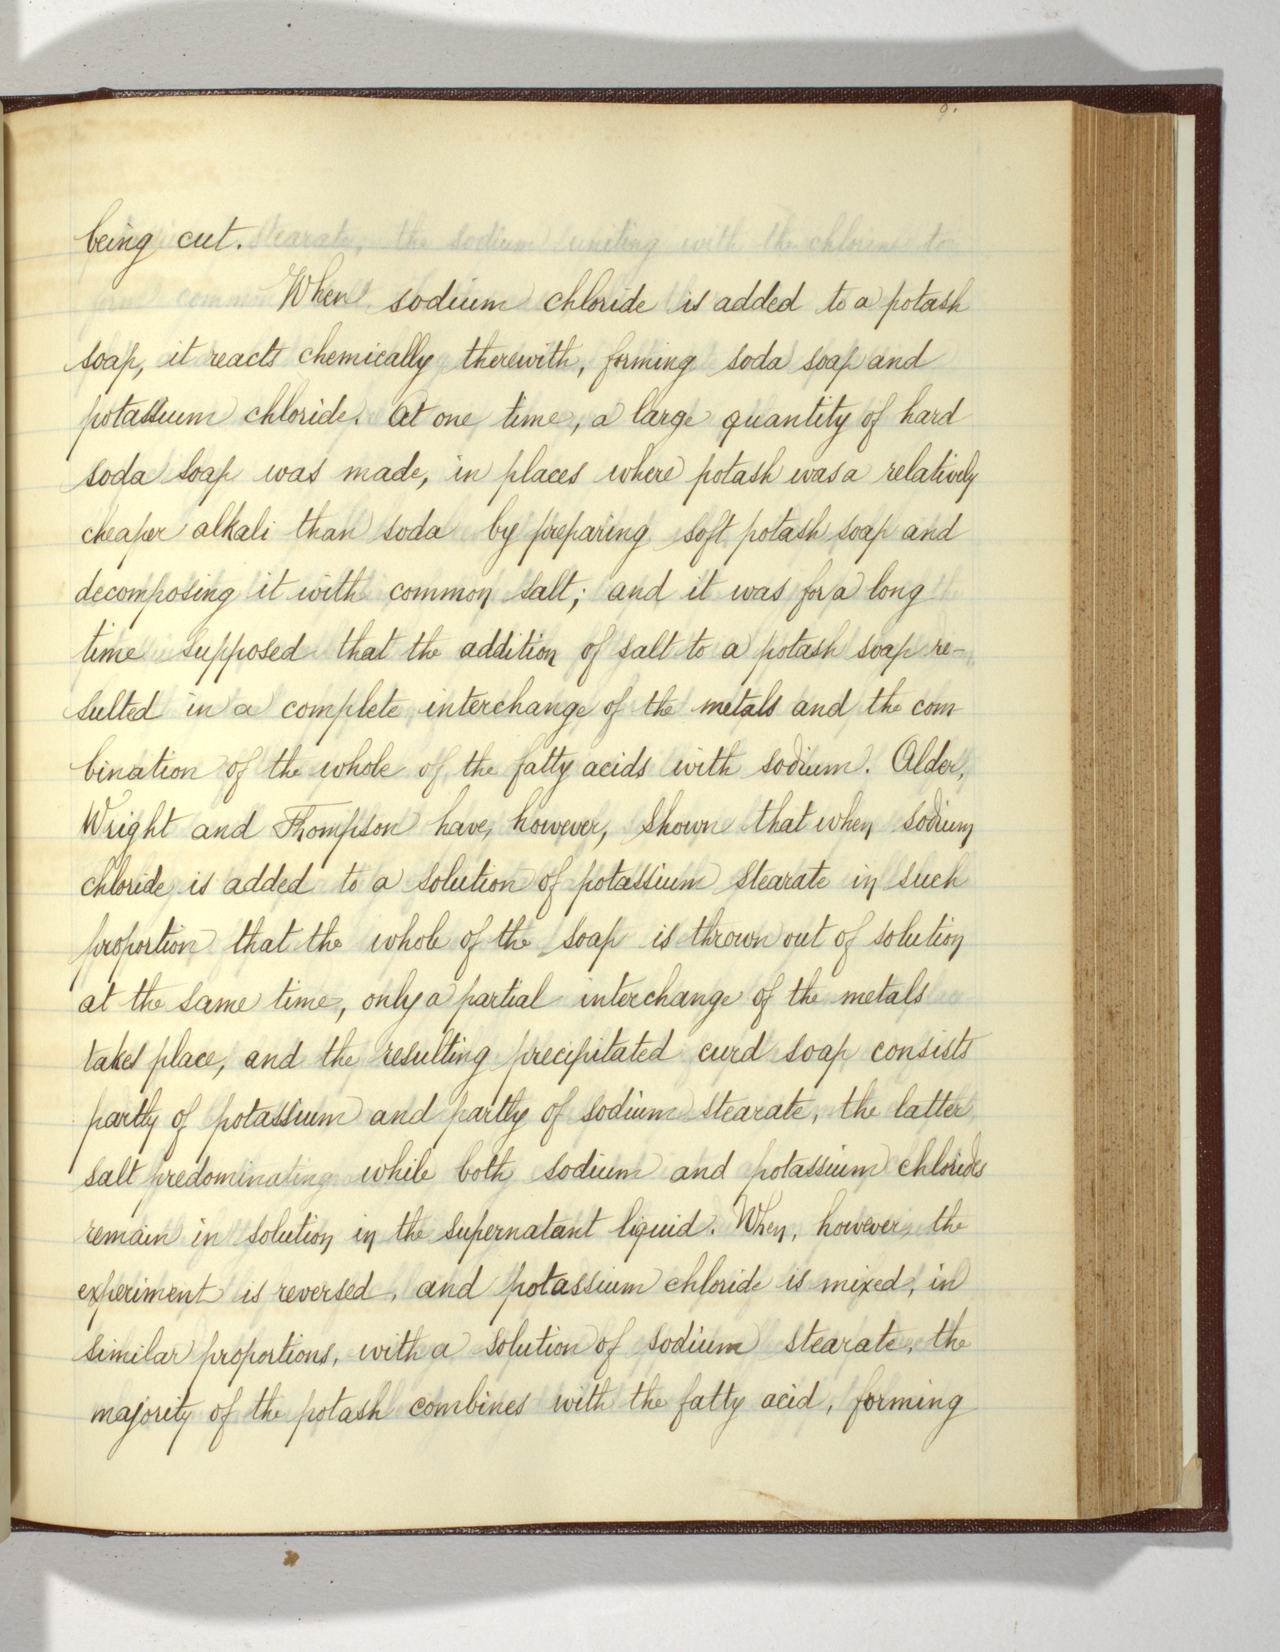 9.
being cut.
When sodium chloride is added to a potash
soap, it reacts chemically therewith, forming soda soap and
potassium chloride. At one time, a large quantity of hard
soda soap was made, in places where potash was a relatively
cheaper alkali than soda by preparing soft potash soap and
decomposing it with common salt; and it was for a long
time supposed that the addition of salt to a potash soap re-
sulted in a complete interchange of the metals and the com-
bination of the whole of the fatty acids with sodium. Alder,
Wright and Thompson have, however, shown that when sodium
chloride is added to a solution of potassium stearate in such
proportion that the whole of the soap is thrown out of solution
at the same time, only a partial interchange of the metals
takes place, and the resulting precipitated curd soap consists
partly of potassium and partly of sodium stearate, the latter
salt predominating while both sodium and potassium chlorides
remain in solution in the supernatant liquid. When, however, the
experiment is reversed, and potassium chloride is mixed, in
similar proportions, with a solution of sodium stearate, the
majority of the potash combines with the fatty acid, forming